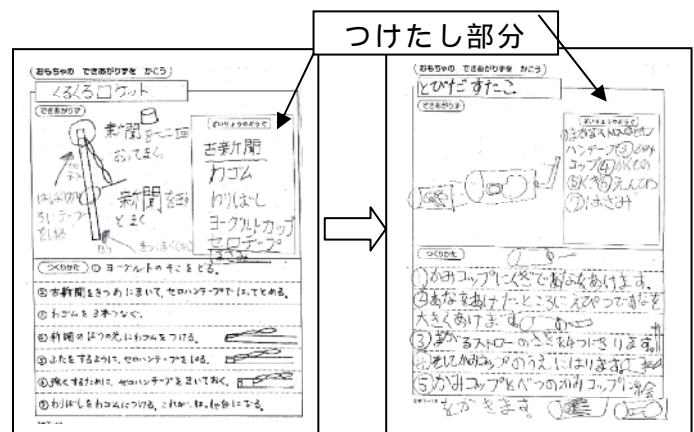 つけたし部分
おもちゃの できあがりずを かこう
くるくるロケット
できあがりず
新聞を二回
おってまく。
新聞を
とまく
ざいりょうやどうぐ
古新聞
わゴム
わりばし
ヨーグルトカップ
セロテープ
はさみ
つくりかた
① ヨーグルトのそこをとる。
②古新聞をきつめにまいて、セロハンテープではってとめる。
③わゴムを3本つなぐ。
④新聞のぼうの先にわゴムをつける。
⑤ふたをするように、セロハンテープをはる。
⑥強くするために、セロハンテープをまいておく。
⑦わりばしをわゴムにつける。これが、はっしゃ台になる。
おもちゃの できあがりずを かこう
とびだすたこ
できあがりず
ざいりょうやどうぐ
ハンテープ③かみ
コップ④
⑦はさみ
つくりかた
①かみコップにくぎであなをあけます。
②あなをあけたところにえんぴつであなを
大きくあけます。
③まがるストローのさきを4つにきります。
④そしてかみコップのうえにはります。
⑤かみコップとべつのかみコップに絵
をかきます。